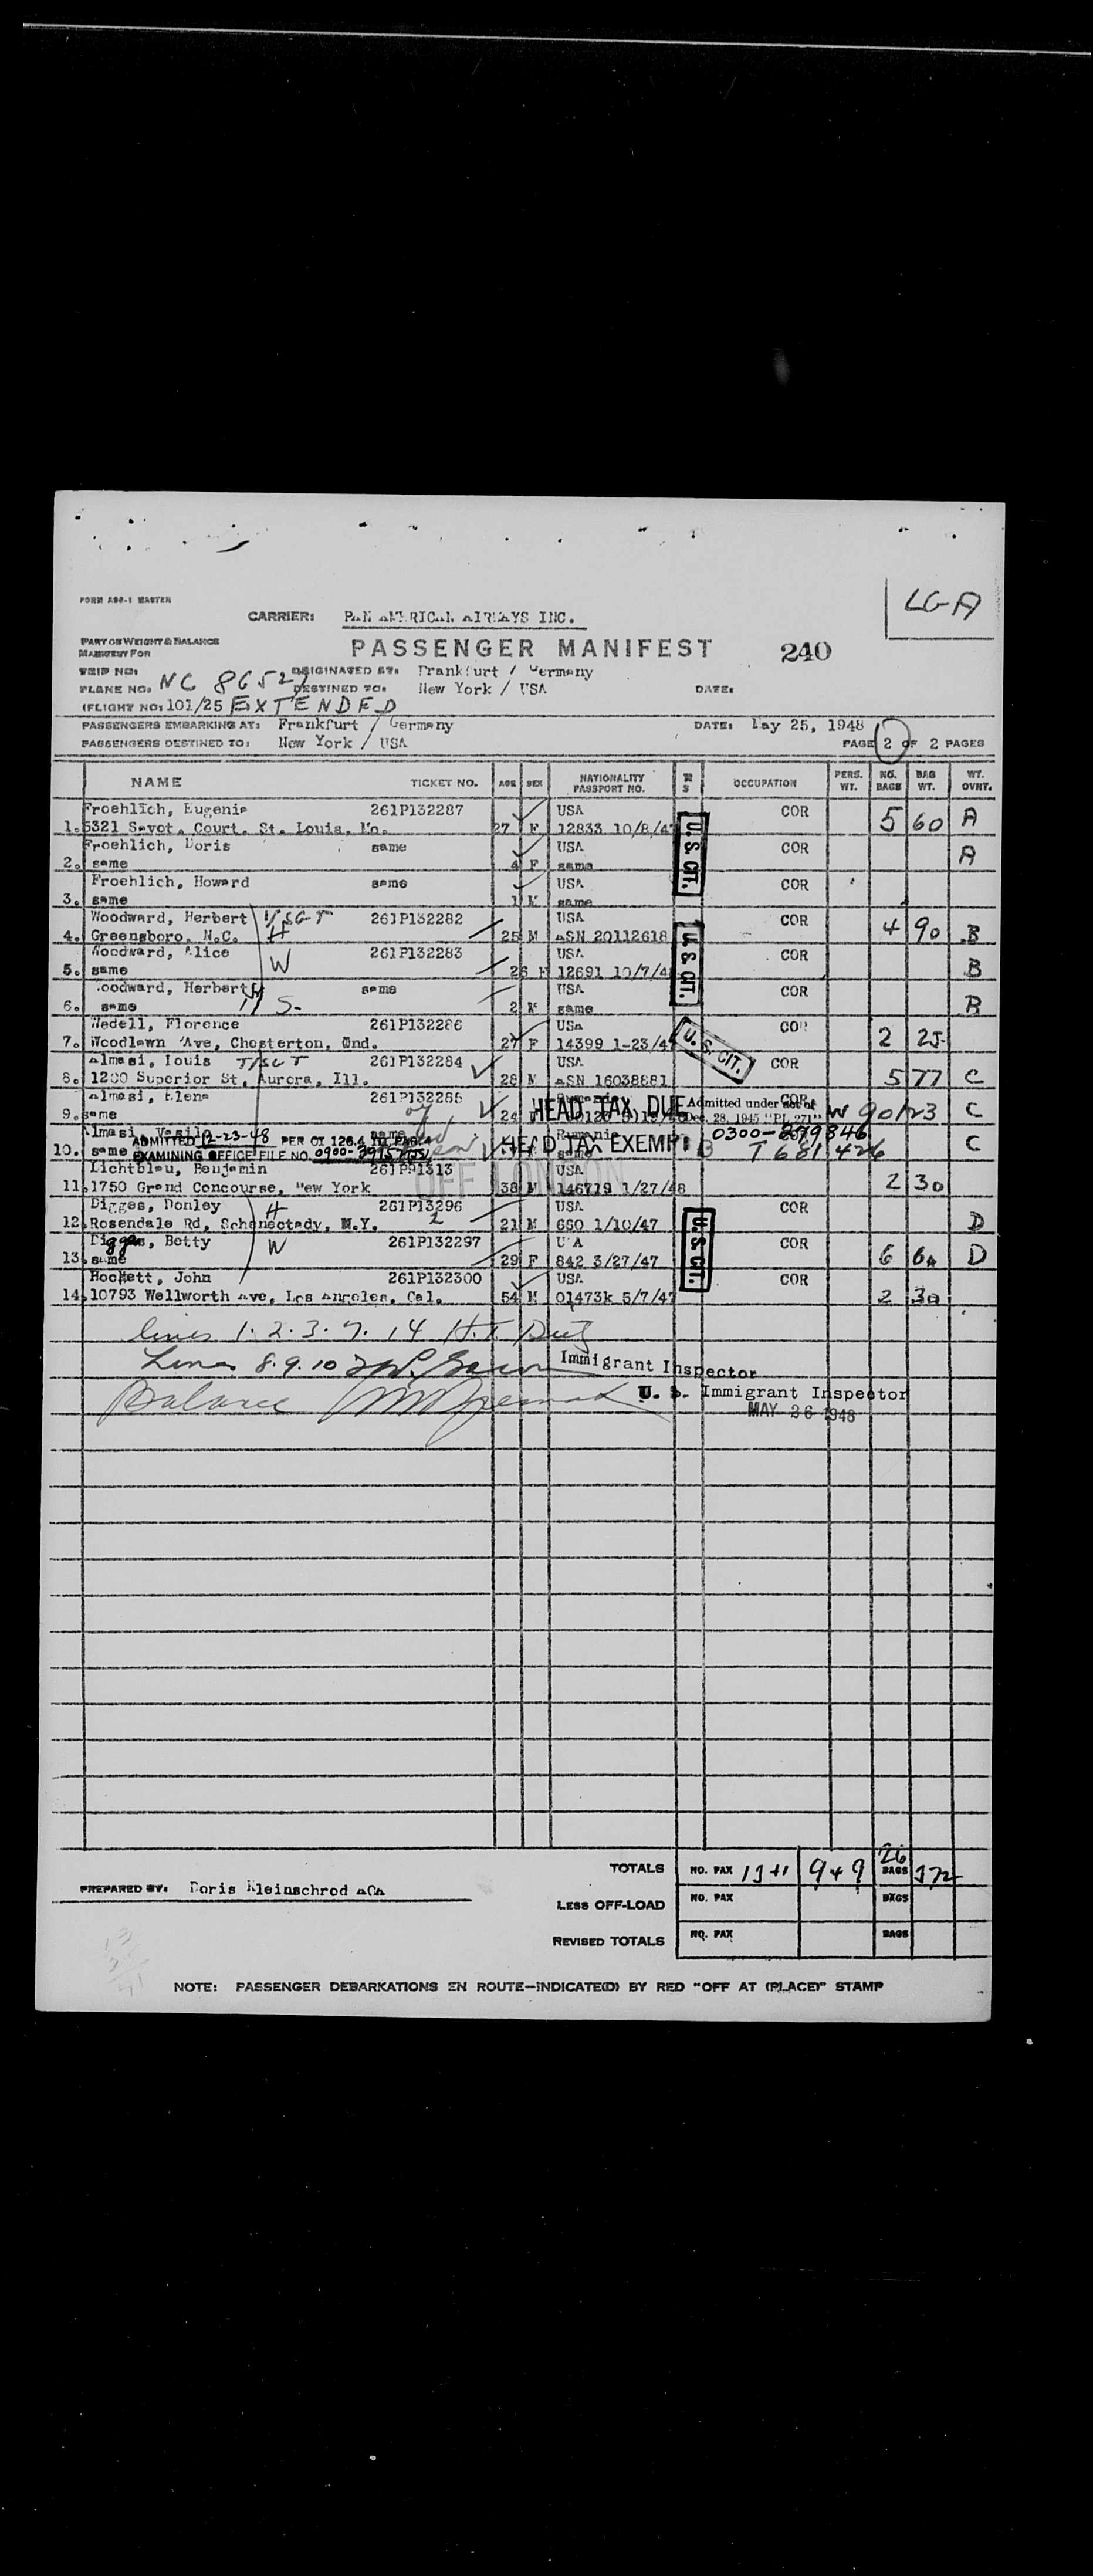 FORM AS8-1 MASTER
LGA
CARRIER: PAN AMERICAN AIRWAYS INC.
PART OR WEIGHT & BALANCE
MANIFEST FOR
PASSENGER MANIFEST 240
TRIP NO: ORIGINATED AT: Frankfurt / Germany
PLANE NO: NC 86527 DESTINED TO: New York / USA DATE:
(FLIGHT NO: 101/25 EXTENDED
PASSENGERS EMBARKING AT: Frankfurt / Germany DATE: May 25, 1948
PASSENGERS DESTINED TO: New York / USA PAGE 2 OF 2 PAGES
NAME TICKET NO. AGE SEX NATIONALITY PASSPORT NO. M S OCCUPATION PERS. WT. NO. BAGS BAG WT. WT. OVRT.
Froehlich, Eugenie 261P132287 USA COR 5 60 A
1. 5321 Savot. Court. St. Louis, Mo. 27 F 12833 10/8/47
U.S. CIT.
Froehlich, Doris same USA COR A
2. same 4 F same
Froehlich, Howard same USA COR
3. same 1 M same
Woodward, Herbert 1/SGT 261P132282 USA COR 4 90 B
4. Greensboro, N.C. H 25 M ASN 20112618
U.S. CIT.
Woodward, Alice W 261P132283 USA COR B
5. same 26 F 12691 10/7/4
Woodward, Herbert same USA COR B
6. same S- 2 M same
Wedell, Florence 261P132286 USA COR 2 25
7. Woodlawn Ave, Chesterton, Ind. 27 F 14399 1-23/4
U.S. CIT.
Almasi, Louis T/SGT 261P132284 USA COR 5 77 C
8. 1200 Superior St, Aurora, Ill. 28 M ASN 16038881
Almasi, Elena 261P132285 COR C
9. same 24 HEAD TAX DUE Admitted under act of Dec. 28, 1945 "PL 271" W 90123
Almasi, Vasile same 0300-379846 C
10. same HEAD TAX EXEMPT T 681426
ADMITTED 12-23-48 PER OI 128.4
EXAMINING OFFICE FILE NO. 0900-
OFF LONDON
Lichtblau, Benjamin 261P91313 USA 2 30
11. 1750 Grand Concourse, New York 38 M 146719 1/27/48
Digges, Donley H 261P13296 USA COR D
12. Rosendale Rd, Schenectady, N.Y. 2 21 M 650 1/10/47
U.S CIT.
Digges, Betty W 261P132297 U A COR 6 D
13. same 29 F 842 3/27/47
Hockett, John 261P132300 USA COR 2 30
14. 10793 Wellworth Ave, Los Angeles, Cal. 54 M 01473k 5/7/47
lines 1. 2. 3. 7. 14 H.T.
Lines 8. 9. 10 Immigrant Inspector
Balance U. S. Immigrant Inspector
MAY 26 1948
TOTALS NO. PAX 13+1 949 26 BAGS 372
PREPARED BY: Doris Kleinschrod AOA
LESS OFF-LOAD NO. PAX BAGS
REVISED TOTALS NO. PAX BAGS
NOTE: PASSENGER DEBARKATIONS EN ROUTE—INDICATE(D) BY RED "OFF AT (PLACE)" STAMP